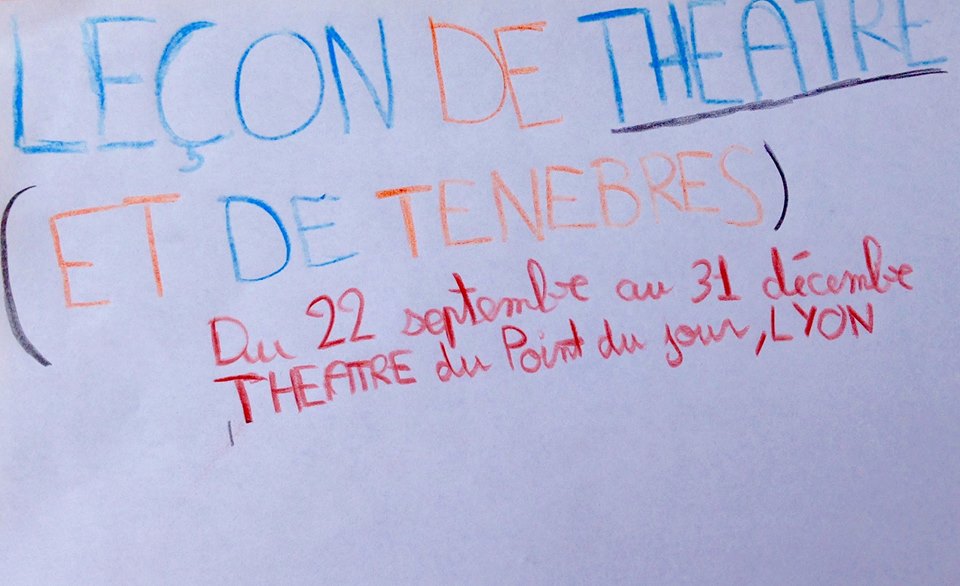 LEÇON DE THEATRE
(ET DE TENEBRES)
Du 22 septembre au 31 décembre
THEATRE du Point du jour, LYON